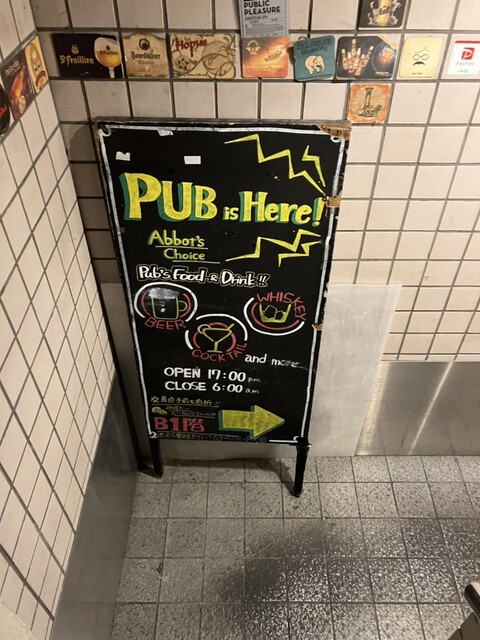 PUBLIC
PLEASURE
St Feuillien
Benediktiner
Hopus
PayPay
PUB is Here!
Abbot's
Choice
Pub's Food & Drink!!
BEER
WHISKEY
COCKTAIL
and more...
OPEN 17:00 p.m.
CLOSE 6:00 a.m.
B1階